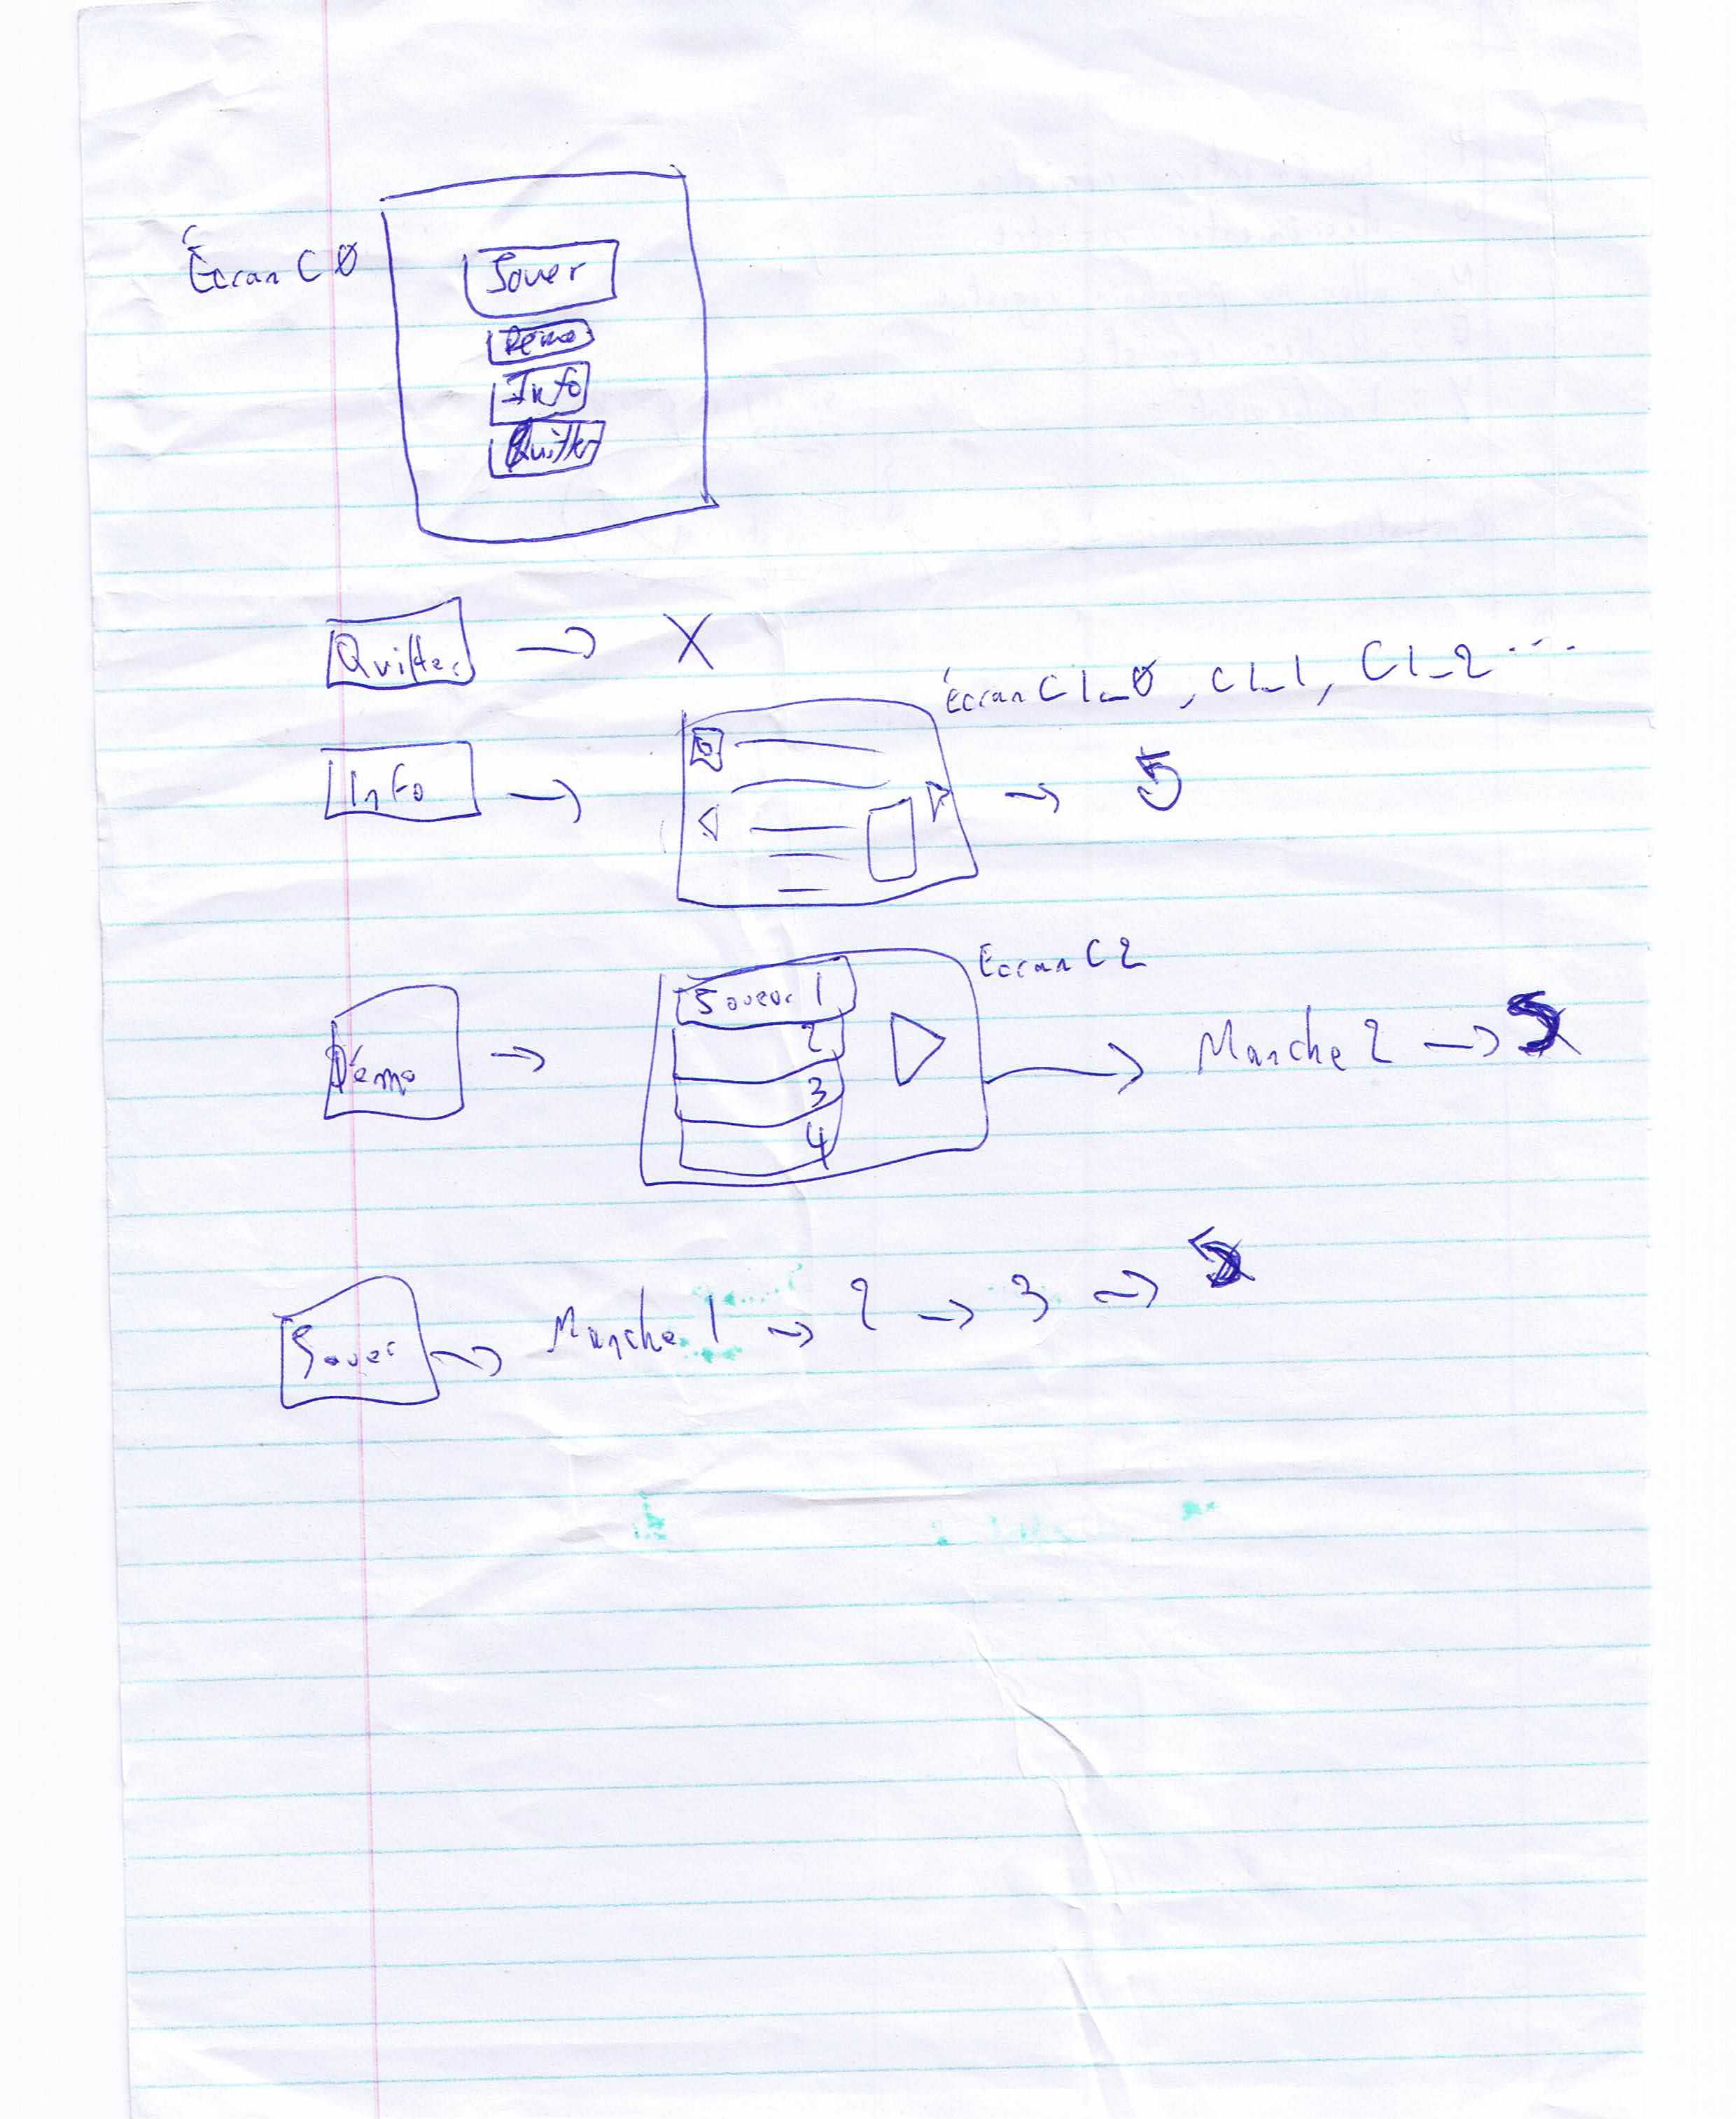 Écran C0
Jouer
Démo
Info
Quitter
Quitter → X
Écran C1_0, C1_1, C1_2 ...
Info →
Écran C2
Démo → Joueur 1 → Manche 2 →
2
3
4
Jouer → Manche 1 → 2 → 3 →